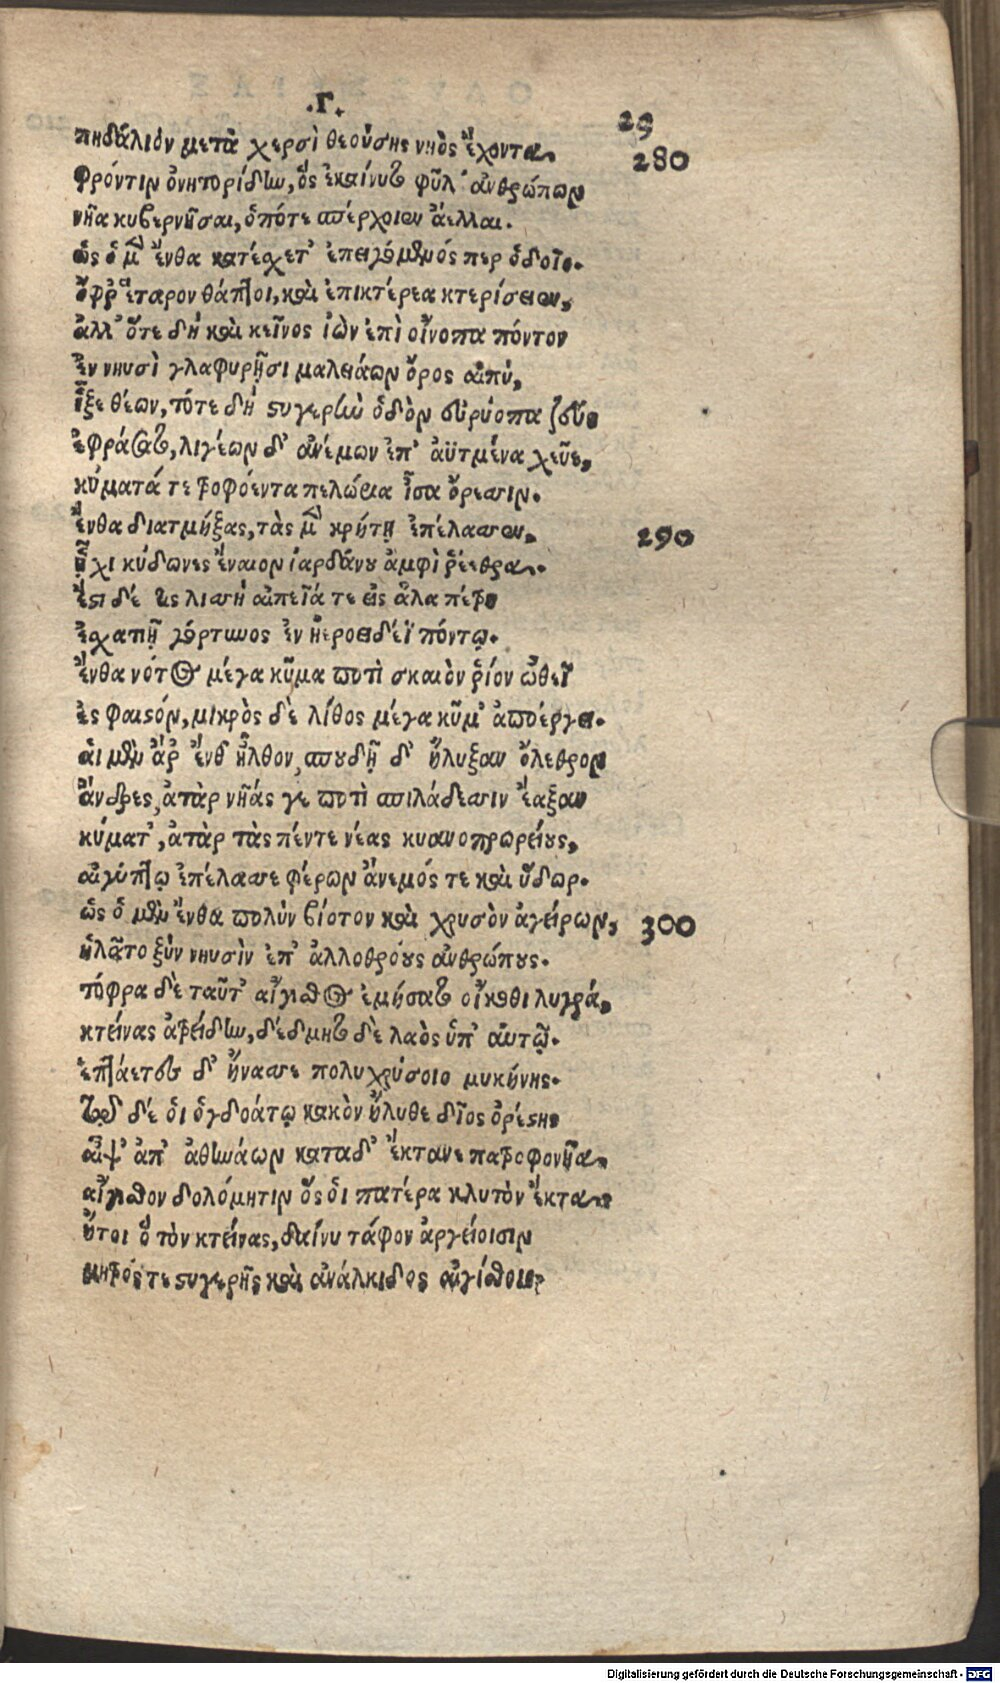 .Γ.
29
πηδάλιον μετὰ χερσὶ θεούσης νηὸς ἔχοντα.
280
φρόντιν ὀνητορίδην, ὃς ἐκαίνυτο φῦλ' ἀνθρώπων
νῆα κυβερνῆσαι, ὁπότε σπέρχοιεν ἄελλαι.
ὣς ὁ μὲν ἔνθα κατέσχετ' ἐπειγόμενός περ ὁδοῖο.
ὄφρ' ἕταρον θάπτοι, καὶ ἐπικτέρεα κτερίσειεν,
ἀλλ' ὅτε δὴ καὶ κεῖνος ἰὼν ἐπὶ οἴνοπα πόντον
ἐν νηυσὶ γλαφυρῇσι μαλειάων ὄρος αἰπύ,
ἷξε θέων, τότε δὴ στυγερὴν ὁδὸν εὐρύοπα ζεύς
ἐφράσατο, λιγέων δ' ἀνέμων ἐπ' ἀϋτμένα χεῦε,
κύματά τε τροφόεντα πελώρια ἶσα ὄρεσσιν.
ἔνθα διατμήξας, τὰς μὲν κρήτῃ ἐπέλασσεν,
290
ᾗχι κύδωνες ἔναιον ἰαρδάνου ἀμφὶ ῥέεθρα.
ἔστι δέ τις λισσὴ αἰπεῖά τε εἰς ἅλα πέτρη
ἐσχατιῇ γόρτυνος ἐν ἠεροειδέϊ πόντῳ.
ἔνθα νότος μέγα κῦμα ποτὶ σκαιὸν ῥίον ὠθεῖ
ἐς φαιστόν, μικρὸς δὲ λίθος μέγα κῦμ' ἀποέργει.
αἱ μὲν ἄρ' ἔνθ' ἦλθον, σπουδῇ δ' ἤλυξαν ὄλεθρον
ἄνδρες, ἀτὰρ νῆάς γε ποτὶ σπιλάδεσσιν ἔαξαν
κύματ', ἀτὰρ τὰς πέντε νέας κυανοπρωρείους,
αἰγύπτῳ ἐπέλασσε φέρων ἄνεμός τε καὶ ὕδωρ.
ὣς ὁ μὲν ἔνθα πολὺν βίοτον καὶ χρυσὸν ἀγείρων,
300
ἠλᾶτο ξὺν νηυσὶν ἐπ' ἀλλοθρόους ἀνθρώπους.
τόφρα δὲ ταῦτ' αἴγισθος ἐμήσατο οἴκοθι λυγρά,
κτείνας ἀτρείδην, δέδμητο δὲ λαὸς ὑπ' αὐτῷ.
ἑπτάετες δ' ἤνασσε πολυχρύσοιο μυκήνης.
τῷ δέ οἱ ὀγδοάτῳ κακὸν ἤλυθε δῖος ὀρέστης
αἲψ' ἀπ' ἀθηνάων κατα δ' ἔκτανε πατροφονῆα,
αἴγισθον δολόμητιν ὅς οἱ πατέρα κλυτὸν ἔκτα.
ἤτοι ὁ τὸν κτείνας, δαίνυ τάφον ἀργείοισιν
μητρός τε στυγερῆς καὶ ἀνάλκιδος αἰγίσθοιο.
Digitalisierung gefördert durch die Deutsche Forschungsgemeinschaft - DFG